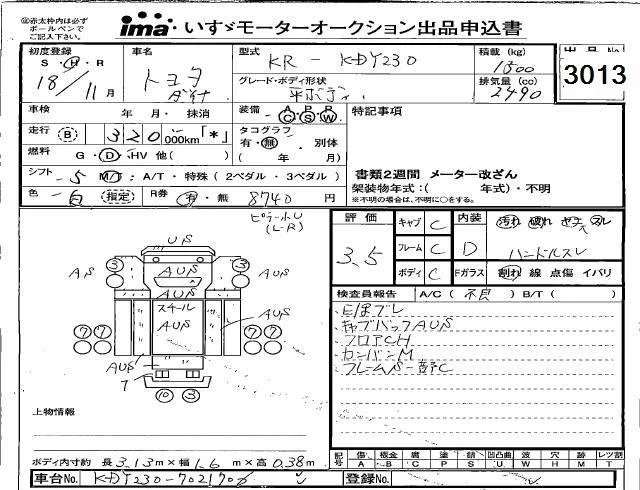 ◎赤太枠内は必ず
ボールペンで
ご記入下さい。
ima いすゞモーターオークション出品申込書
初度登録
S・H・R
18/11月
車名
トヨタ
ダイナ
型式
KR-KDY230
グレード・ボディ形状
平ボディ
積載 (kg)
1300
排気量 (cc)
2490
出品No.
3013
車検 年 月・抹消
装備 A P R
C S W
特記事項
走行 B 320 000km「*」
タコグラフ
有・無・別体
( 年 月)
燃料 G・D・HV 他( )
シフト 5 M/T・A/T・特殊 (2ペダル・3ペダル)
書類2週間 メーター改ざん
架装物年式:( 年式)・不明
※不明の場合は、不明に○をする。
色 白 指定 R券 有・無 8740 円
ピラーホU
(L-R)
US
3 3
A,S AUS AUS
AUS
スチール
AUS AUS
7 7 7 7
AUS
7
10 3
上物情報
ボディ内寸約 長 3.13m×幅 1.6 m×高 0.38m
評価
3.5
キャブ C
フレーム C
ボディ C
内装
D
Fガラス
汚れ 破れ ヤケ スレ
ハンドルスレ
割れ 線 点傷 イバリ
検査員報告 A/C( 不良 ) B/T( )
キャブバックAUS
フロアCH
カンバンM
記号 傷A 板金B 腐C 塗P 錆S 凹凸曲U 波W 穴H 跡M レツ割T
車台No. KDY230-7021706
登録No.